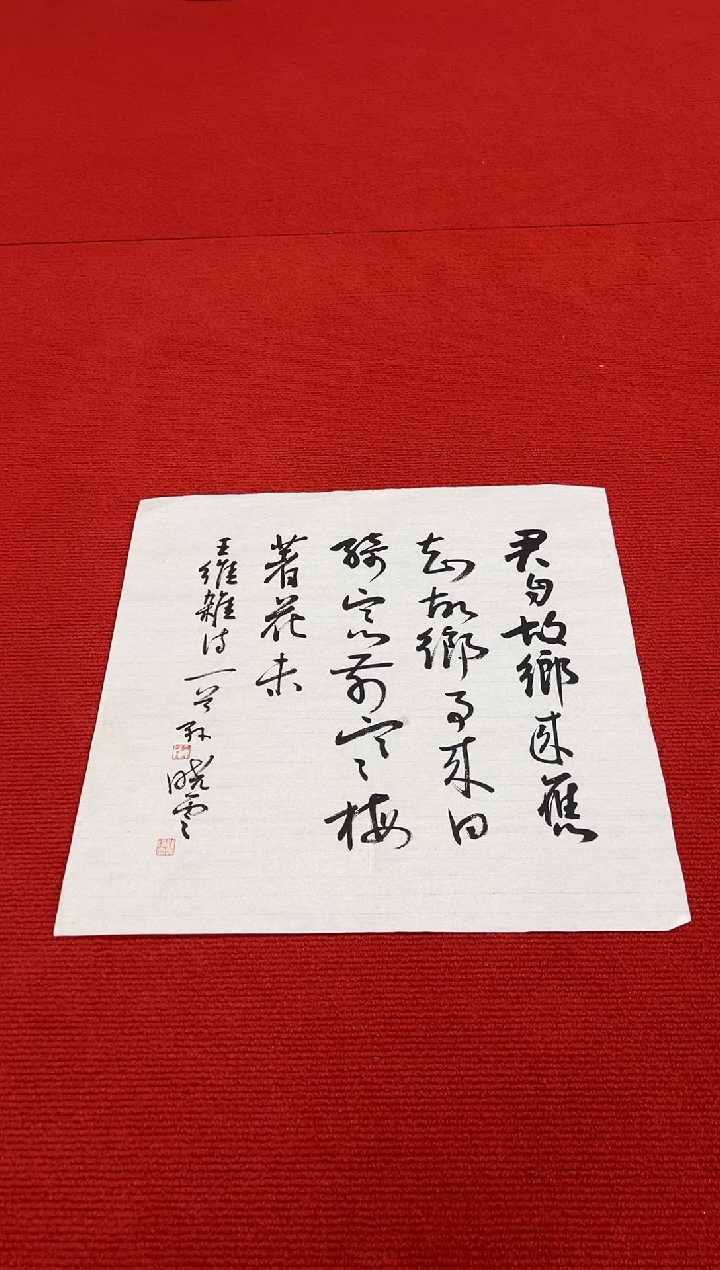 君自故鄉來應
知故鄉事來日
綺窗前寒梅
著花未
王維雜诗一首 孙晓雲